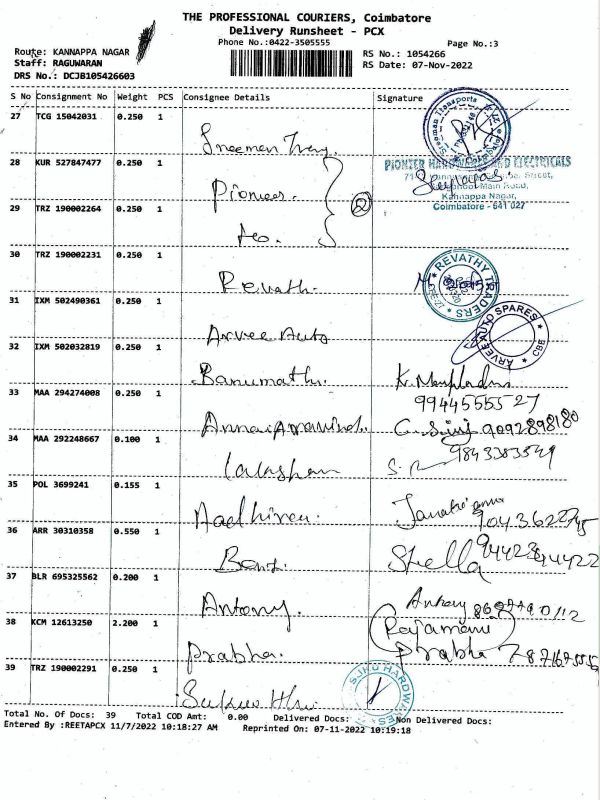 THE PROFESSIONAL COURIERS, Coimbatore
Delivery Runsheet - PCX
Phone No.:0422-3505555
Page No.:3
Route: KANNAPPA NAGAR
Staff: RAGUWARAN
DRS No.: DCJB105426603
RS No.: 1054266
RS Date: 07-Nov-2022
S No Consignment No Weight PCS Consignee Details Signature
27 TCG 15042031 0.250 1
Sreeman
28 KUR 527847477 0.250 1
PIONEER HARDWARES AND ELECTRICALS
Main Road,
Kannappa Nagar,
Coimbatore - 641 027
Pioneer.
2
29 TRZ 190002264 0.250 1
do.
30 TRZ 190002231 0.250 1
Revath.
REVATHY TRADERS
31 IXM 502490361 0.250 1
Arvee Auto
ARVEE AUTO SPARES
CBE
32 IXM 502032819 0.250 1
Banumathi.
K.
9944555527
33 MAA 294274008 0.250 1
9092898180
34 MAA 292248667 0.100 1
9843383549
35 POL 3699241 0.155 1
Aadhiran.
36 ARR 30310358 0.550 1
Stella
37 BLR 695325562 0.200 1
Antony.
Antony
38 KCM 12613250 2.200 1
(Rajamani)
Prabha.
Prabha
39 TRZ 190002291 0.250 1
HARDWARES
Total No. Of Docs: 39 Total COD Amt: 0.00 Delivered Docs: Non Delivered Docs:
Entered By :REETAPCX 11/7/2022 10:18:27 AM Reprinted On: 07-11-2022 10:19:18